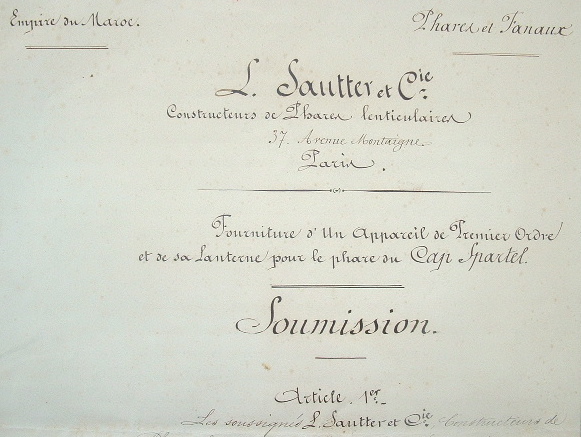 Empire du Maroc.
Phares et Fanaux
L. Sautter et Cie.
Constructeurs de Phares lenticulaires
37. Avenue Montaigne.
Paris.
Fourniture d'Un Appareil de Premier Ordre
et de sa Lanterne pour le phare du Cap Spartel.
Soumission.
Article. 1er.
Les soussignés L. Sautter et Cie Constructeurs de